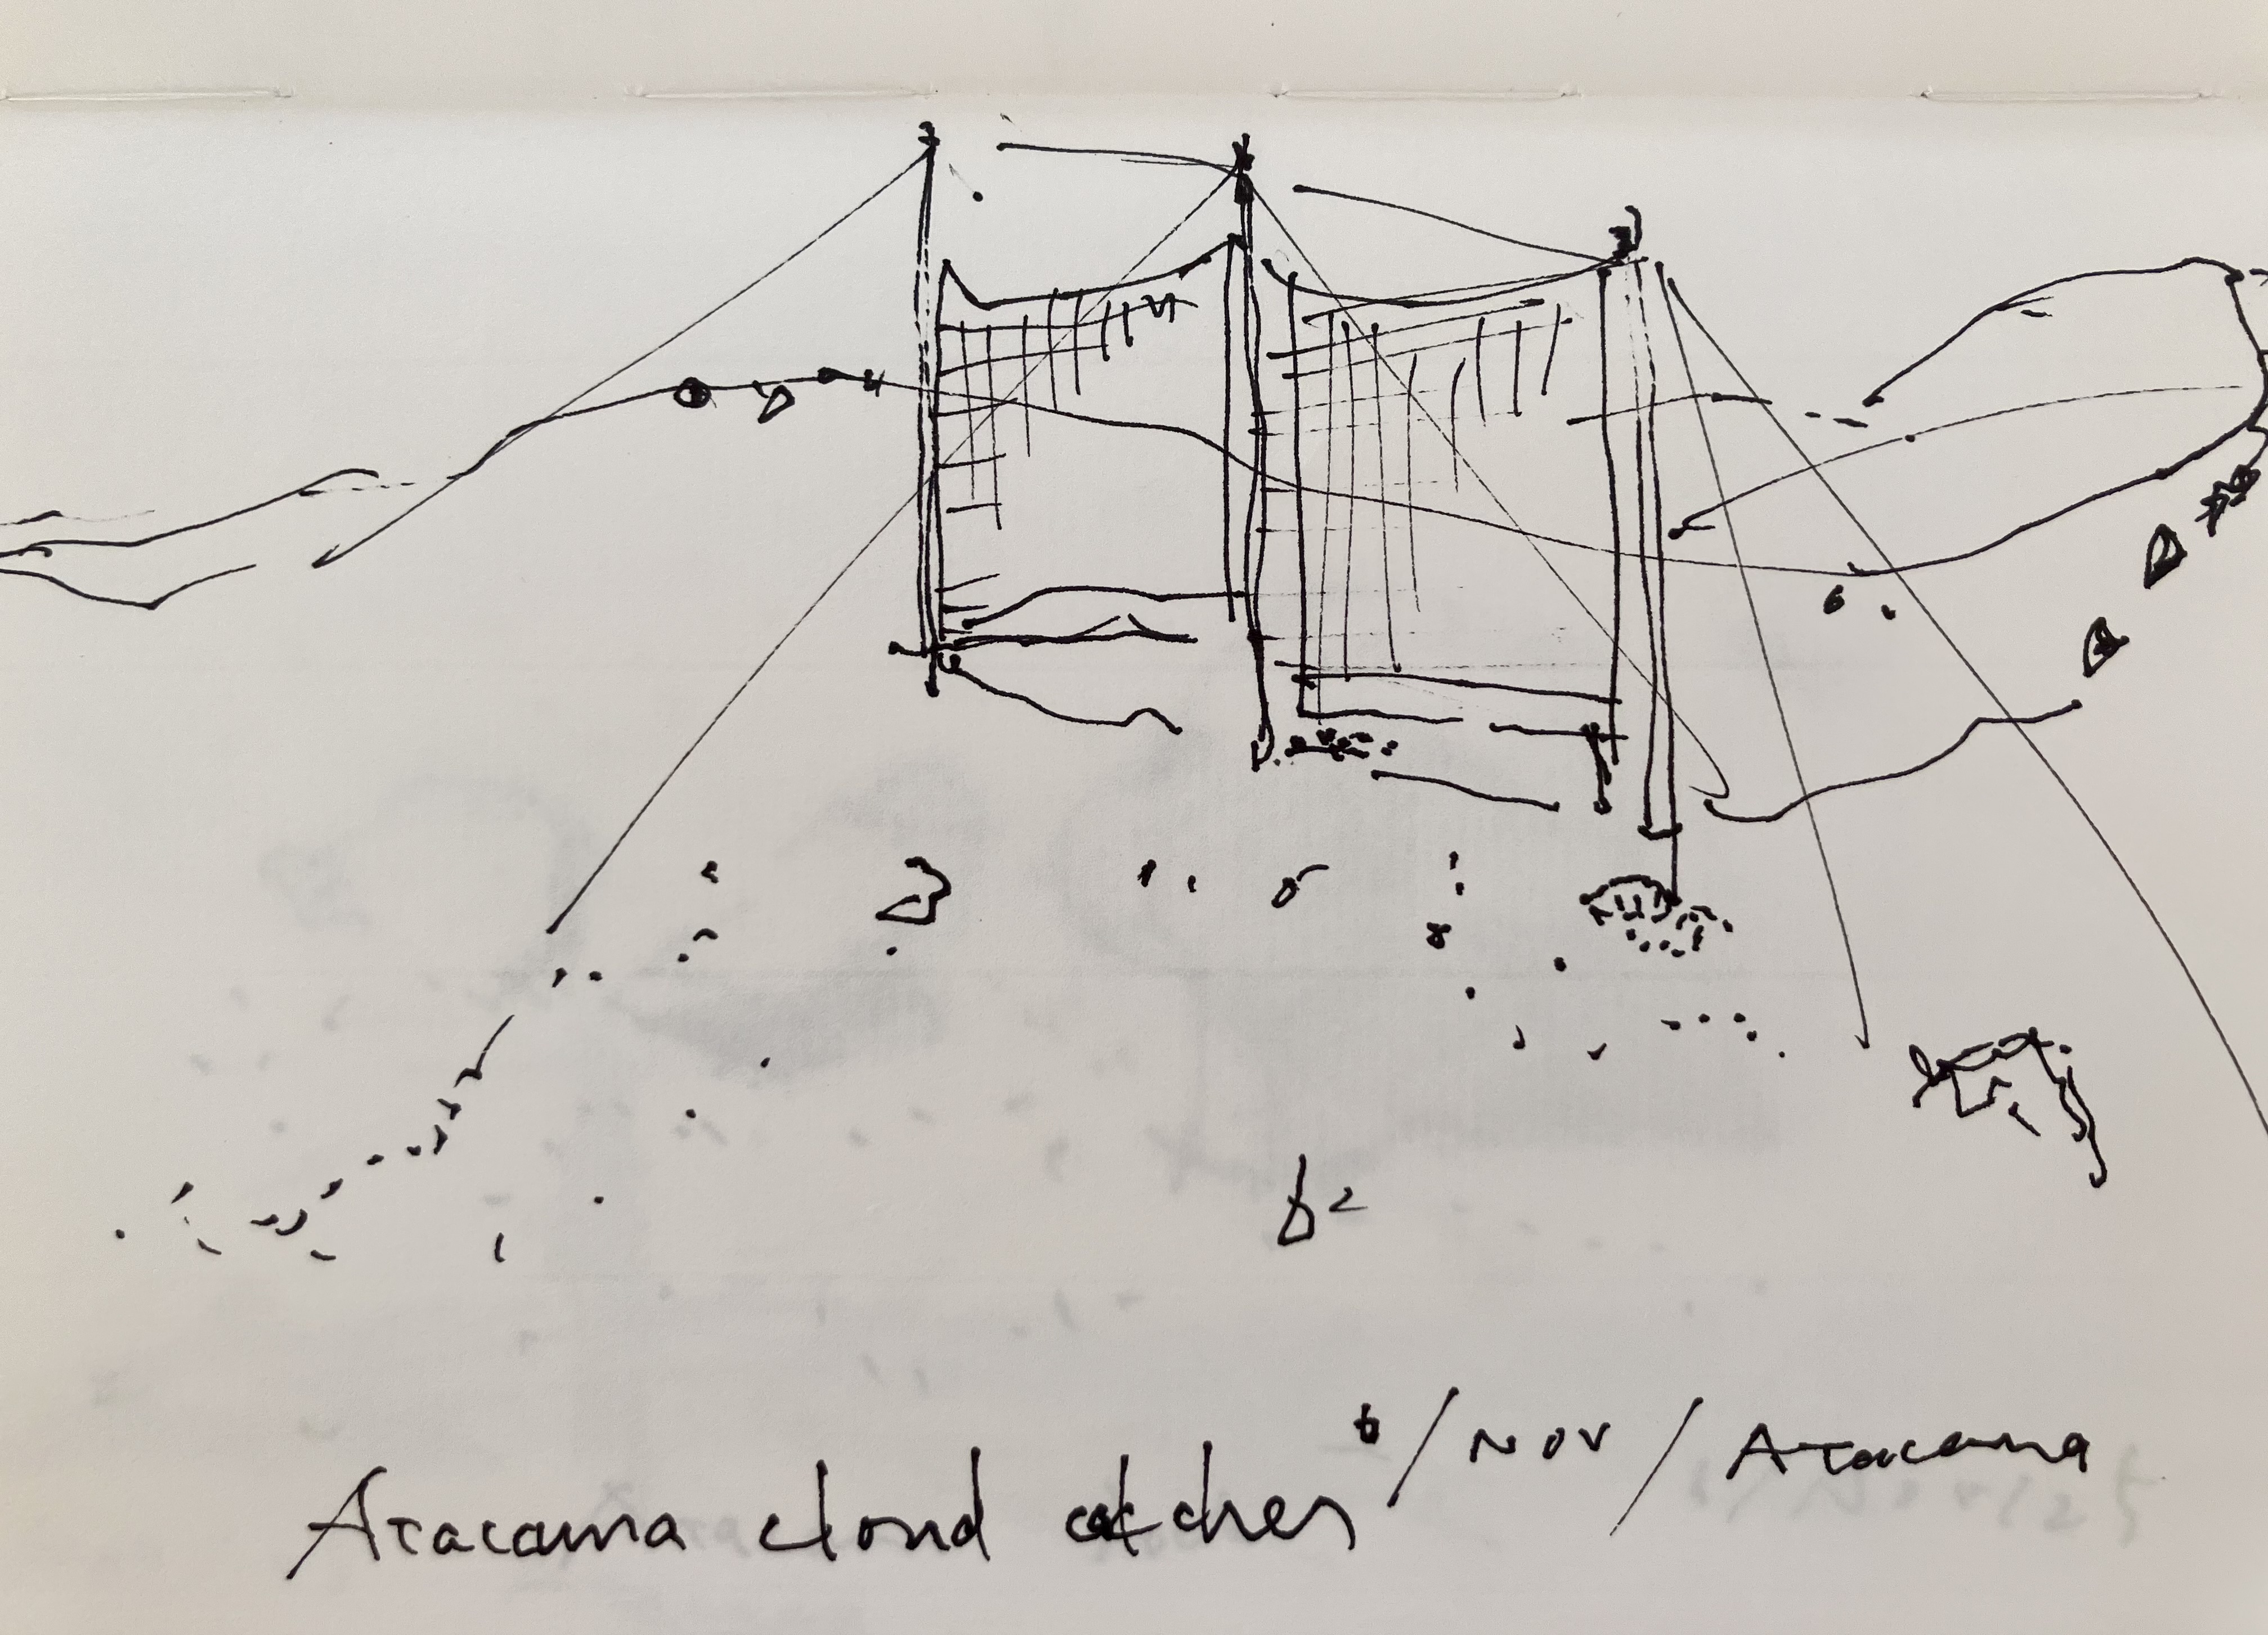 Atacama cloud catcher
6/Nov/Atacama